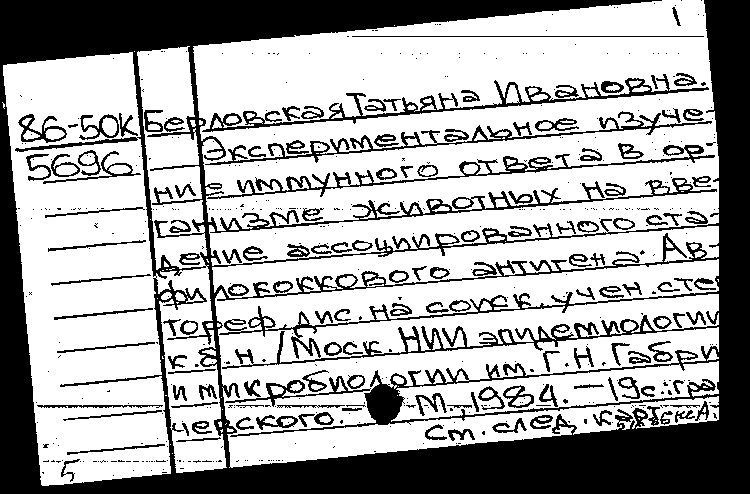 1
86-50К Берловская, Татьяна Ивановна.
5696 Экспериментальное изуче-
ние иммунного ответа в ор-
ганизме животных на вве-
дение ассоциированного ста-
филококкового антигена: Ав-
тореф. дис. на соиск. учен. сте
к.б.н. / Моск. НИИ эпидемиологии
и микробиологии им. Г.Н. Габри
чевского. - М., 1984. - 19с.: гра
См. след. карт
5